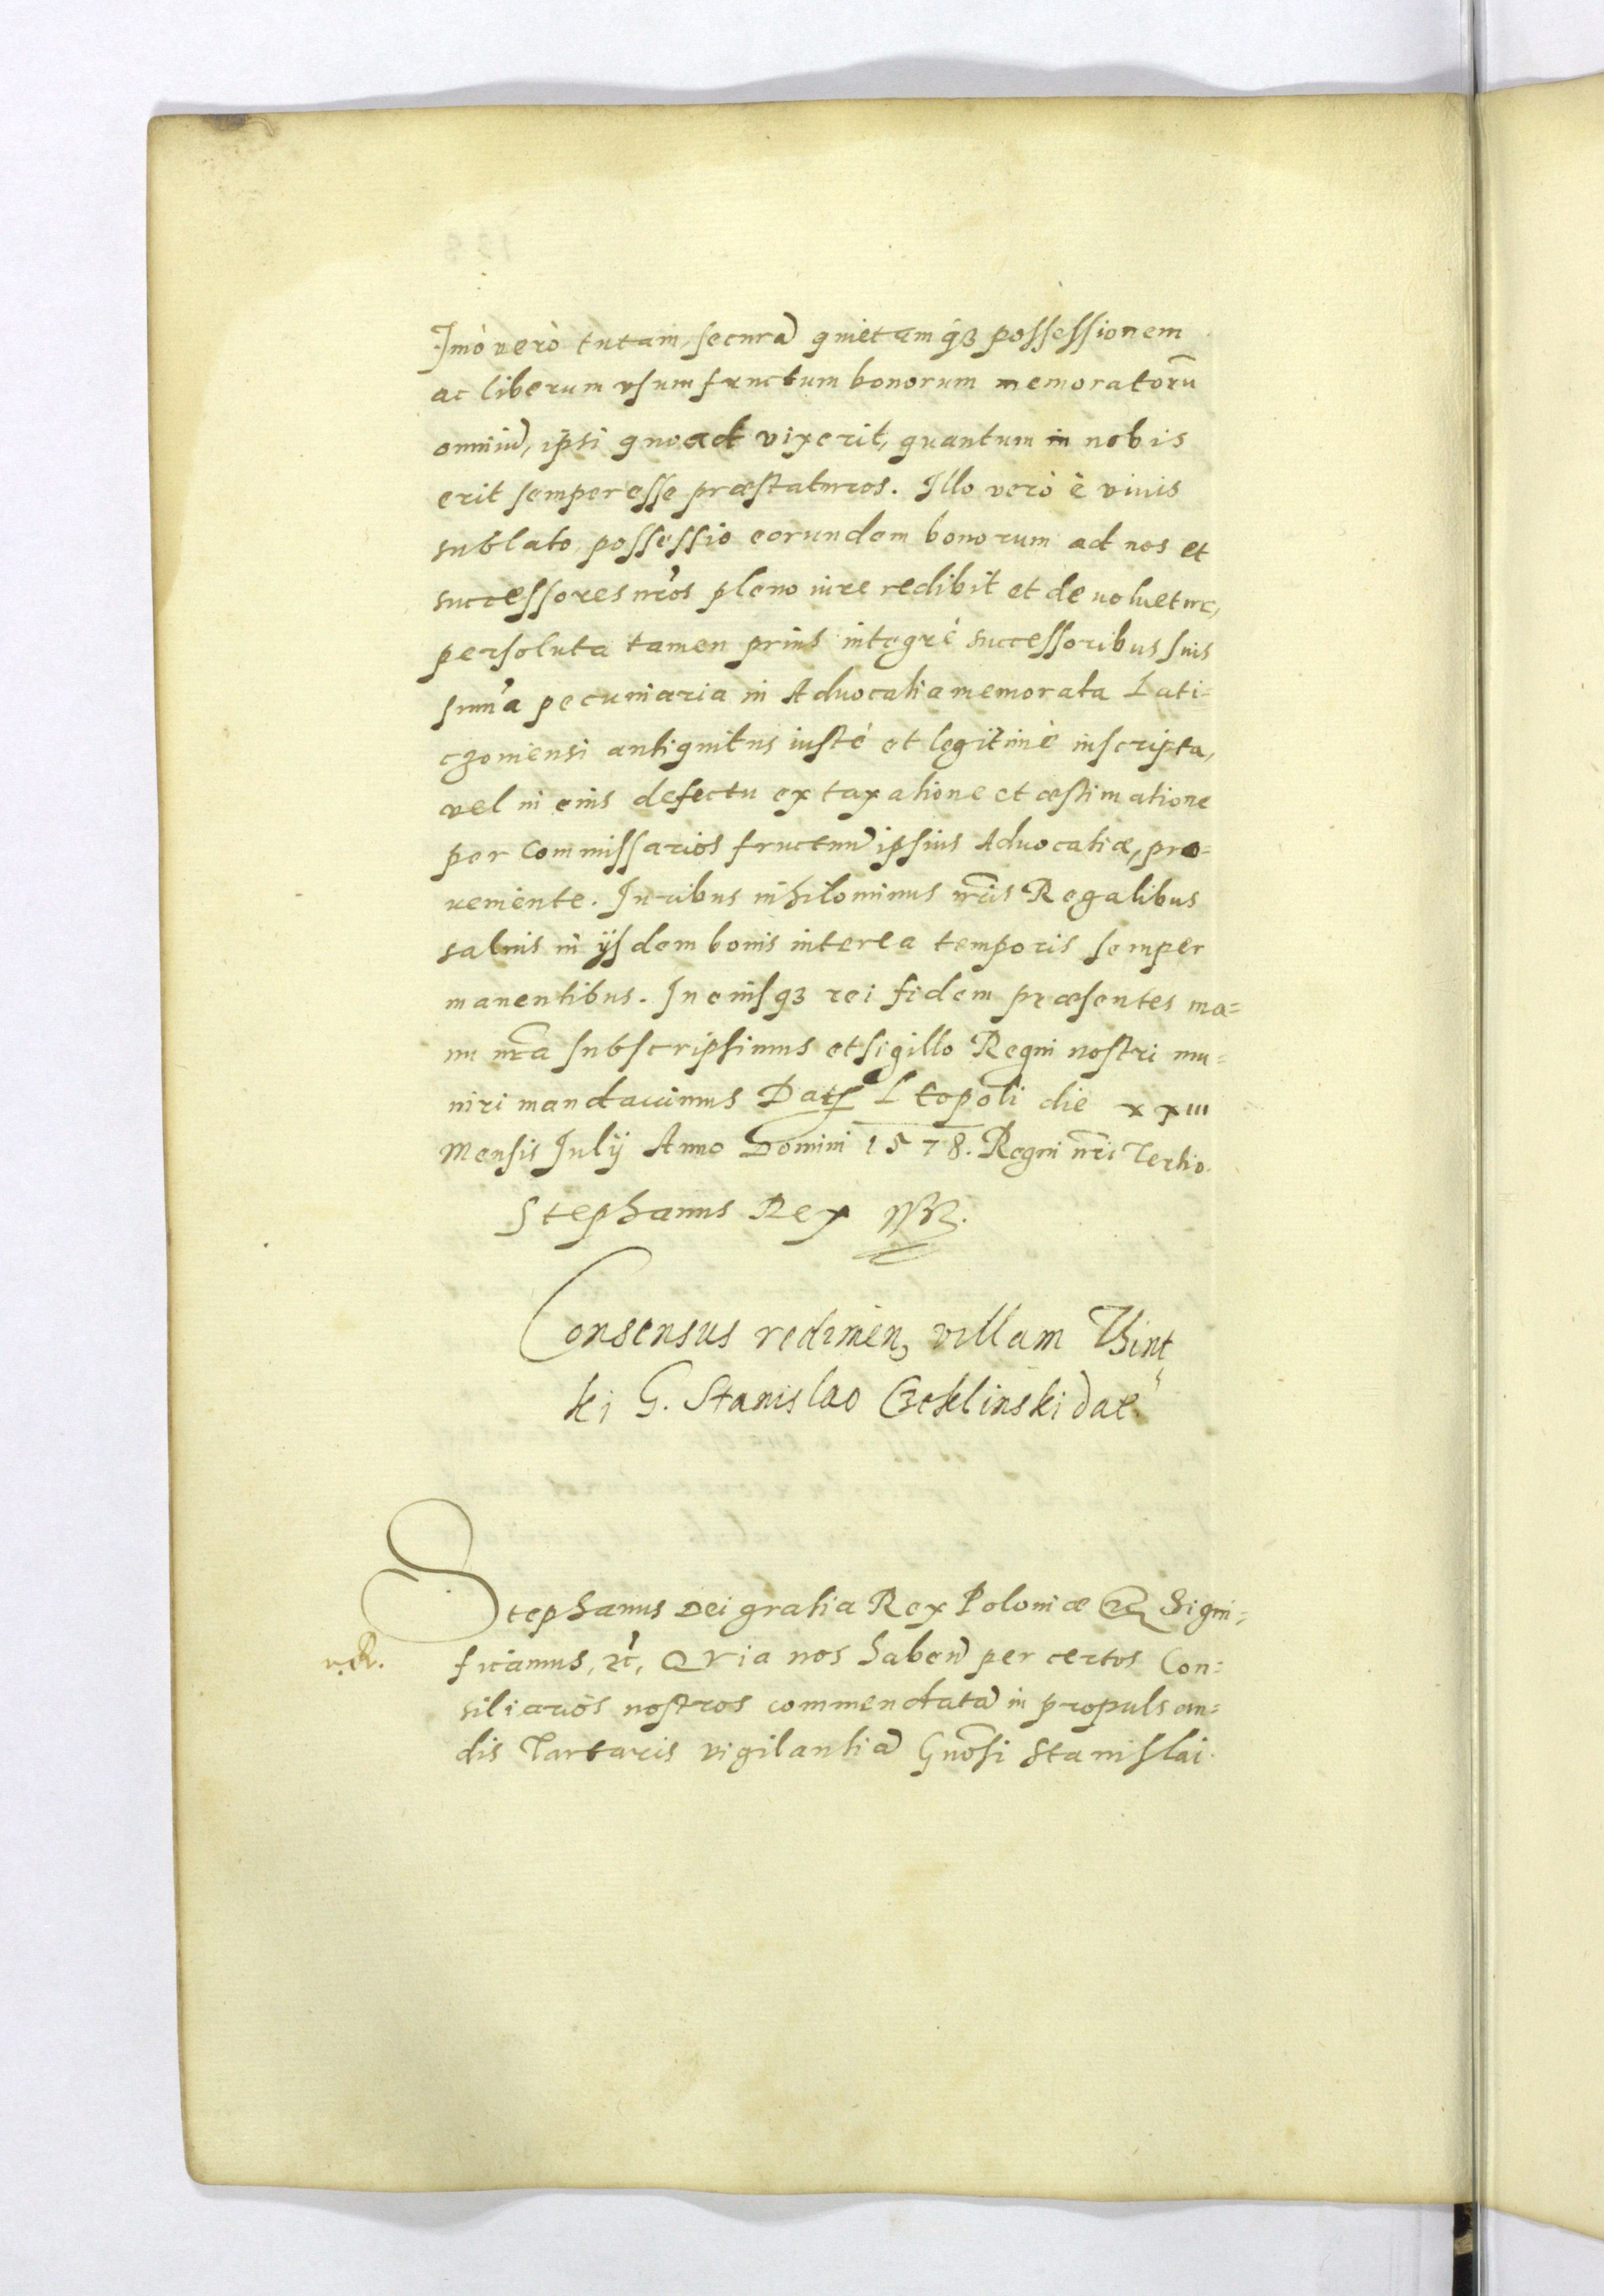 Imò verò tutam, securã quietamq3 possessionem
ac liberum vsumfructum bonorum memoratorũ
omniũ, ipsi quoad vixerit, quantum in nobis
erit semper esse præstaturos. Illo verò è viuis
sublato, possessio eorundem bonorum ad nos et
successores nr̃os pleno iure redibit et deuoluetur,
persoluta tamen prius integrè successoribus suis
sum̃a pecuniaria in Aduocatia memorata Lati=
czouiensi antiquitus iustè et legitimè inscripta,
vel in eius defectu ex taxatione et æstimatione
per Commissarios fructuũ ipsius Aduocatiæ, pro=
ueniente. Iuribus nihilominus nr̃is Regalibus
saluis in ijsdem bonis interea temporis semper
manentibus. In eiusq3 rei fidem præsentes ma=
nu nr̃a subscripsimus et sigillo Regni nostri mu=
niri mandauimus Dat Leopoli die xxiii
Mensis Iulij Anno Domini 1578. Regni nr̃i Tertio.
Stephanus Rex
Consensus redimen, villam
ki G. Stanislao Czeklinski dat
Stephanus Dei gratia Rex Poloniæ Signi=
ficamus, &c, Quia nos haben per certos Con=
siliarios nostros commendatã in propulsan=
dis Tartaris vigilantiã Gnõsi Stanislai